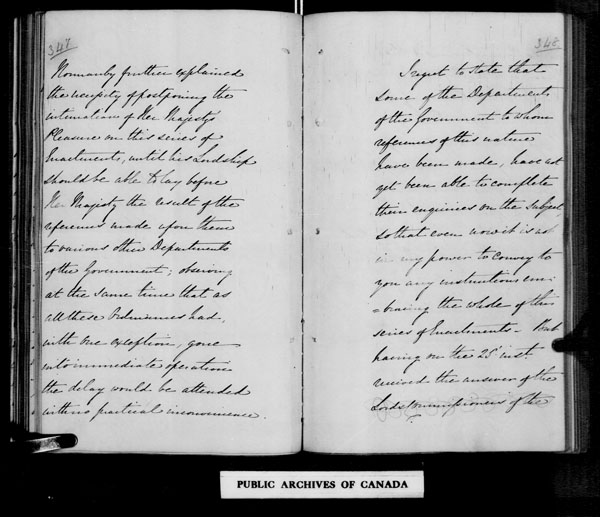 347
Normanby further explained
the necessity of postponing the
intimation of Her Majesty's
Pleasure on this series of
Enactments, until his Lordship
should be able to lay before
Her Majesty the result of the
references made upon them
to various other Departments
of the Government; observing
at the same time that as
all these Ordinances had,
with one exception, gone
into immediate operation
the delay would be attended
with no practical inconvenience.
348
I regret to state that
some of the Departments
of the Government to whom
references of this nature
have been made, have not
yet been able to complete
their enquiries on the subject,
so that even now it is not
in my power to convey to
you any instructions em-
=bracing the whole of this
series of Enactments. But
having on the inst
received the answer of the
Lords Commissioners of the
PUBLIC ARCHIVES OF CANADA